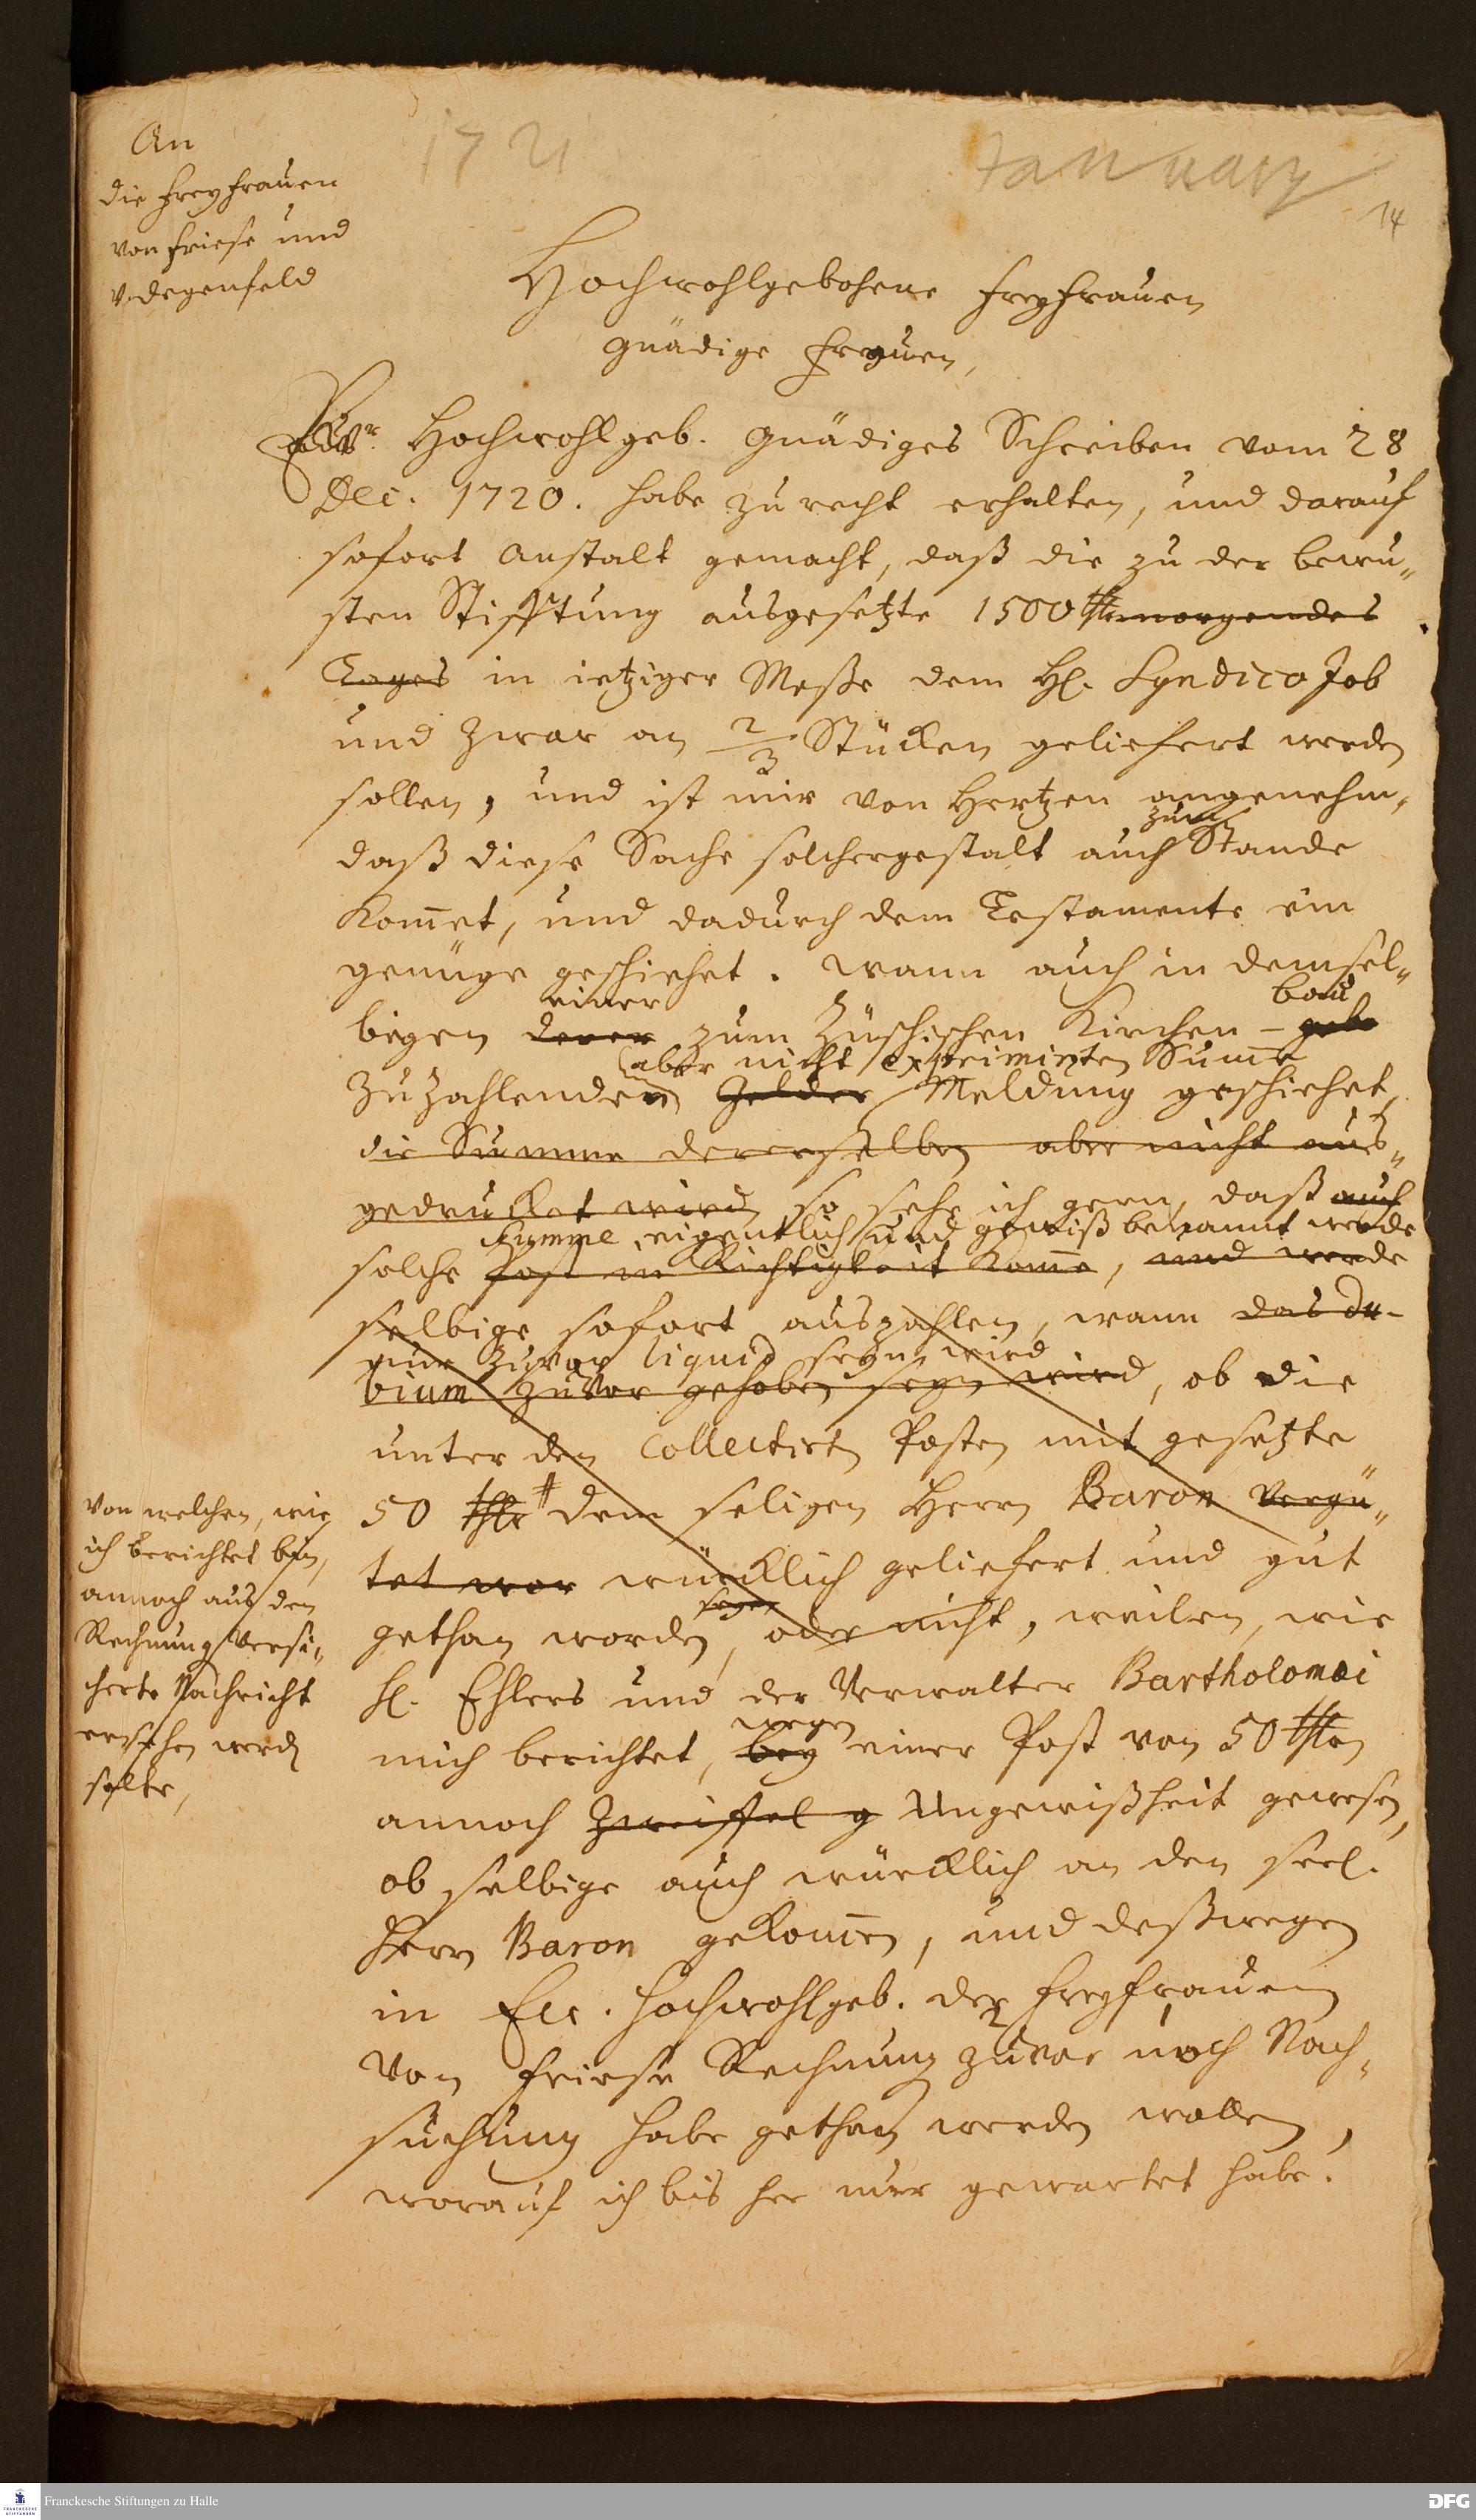 An
die Freyfrauen
von Friese und
v. Degenfeld
1721
January
14
Hochwohlgebohrne Freyfrauen
Gnädige Frauen,
Hochwohlgeb. Gnädiges Schreiben vom 28
Dec. 1720. habe zu recht erhalten, und darauf
sofort Anstalt gemacht, daß die zu der bewu-
sten Stifftung ausgesetzte 1500 thlr morgendes
Tages in ietziger Messe dem H. Syndico Job
und zwar an 2/3 Stücken geliefert werden
sollen, und ist mir von Hertzen angenehm,
zum
daß diese Sache solchergestalt auch Stande
kom̄et, und dadurch dem Testamente ein
genüge geschiehet. Wann auch in demsel-
einer bau
bigen derer zum Züschischen Kirchen - gebe
(aber nicht exprimirten Sum̄e
zu zahlenden Gelder Meldung geschiehet,
die Summe dererselben aber nicht aus-
gedrucket wird so sehe ich gern, daß auch
Summe, eigentlich und gewiß bekannt werde
solche Post in Richtigkeit kom̄e, und werde
selbige sofort auszahlen, wann das du-
nur zuvor liquid seyn wird
bium zuvor gehoben seyn wird, ob die
unter den Collectirten Posten mit gesetzte
50 thlr dem seligen Herrn Baron vergü-
tet wor würcklich geliefert und gut
seyen
gethan worden, oder nicht, weilen, wie
H. Ehlers und der Verwalter Bartholomæi
wegen
mich berichtet, bey einer Post von 50 thlrn
annoch Zweiffel g Ungewißheit gewesen,
ob selbige auch würcklich an den seel.
Herrn Baron gekom̄en, und deßwegen
in Ew. Hochwohlgeb. der Freyfrauen
von Friese Rechnung zuvor noch Nach-
suchung habe gethan werden wollen,
worauf ich bis her nur gewartet habe.
von welchen, wie
ich berichtet bin,
annoch aus den
Rechnung versi-
cherte Nachricht
ersehen werden
solte,
Franckesche Stiftungen zu Halle
DFG